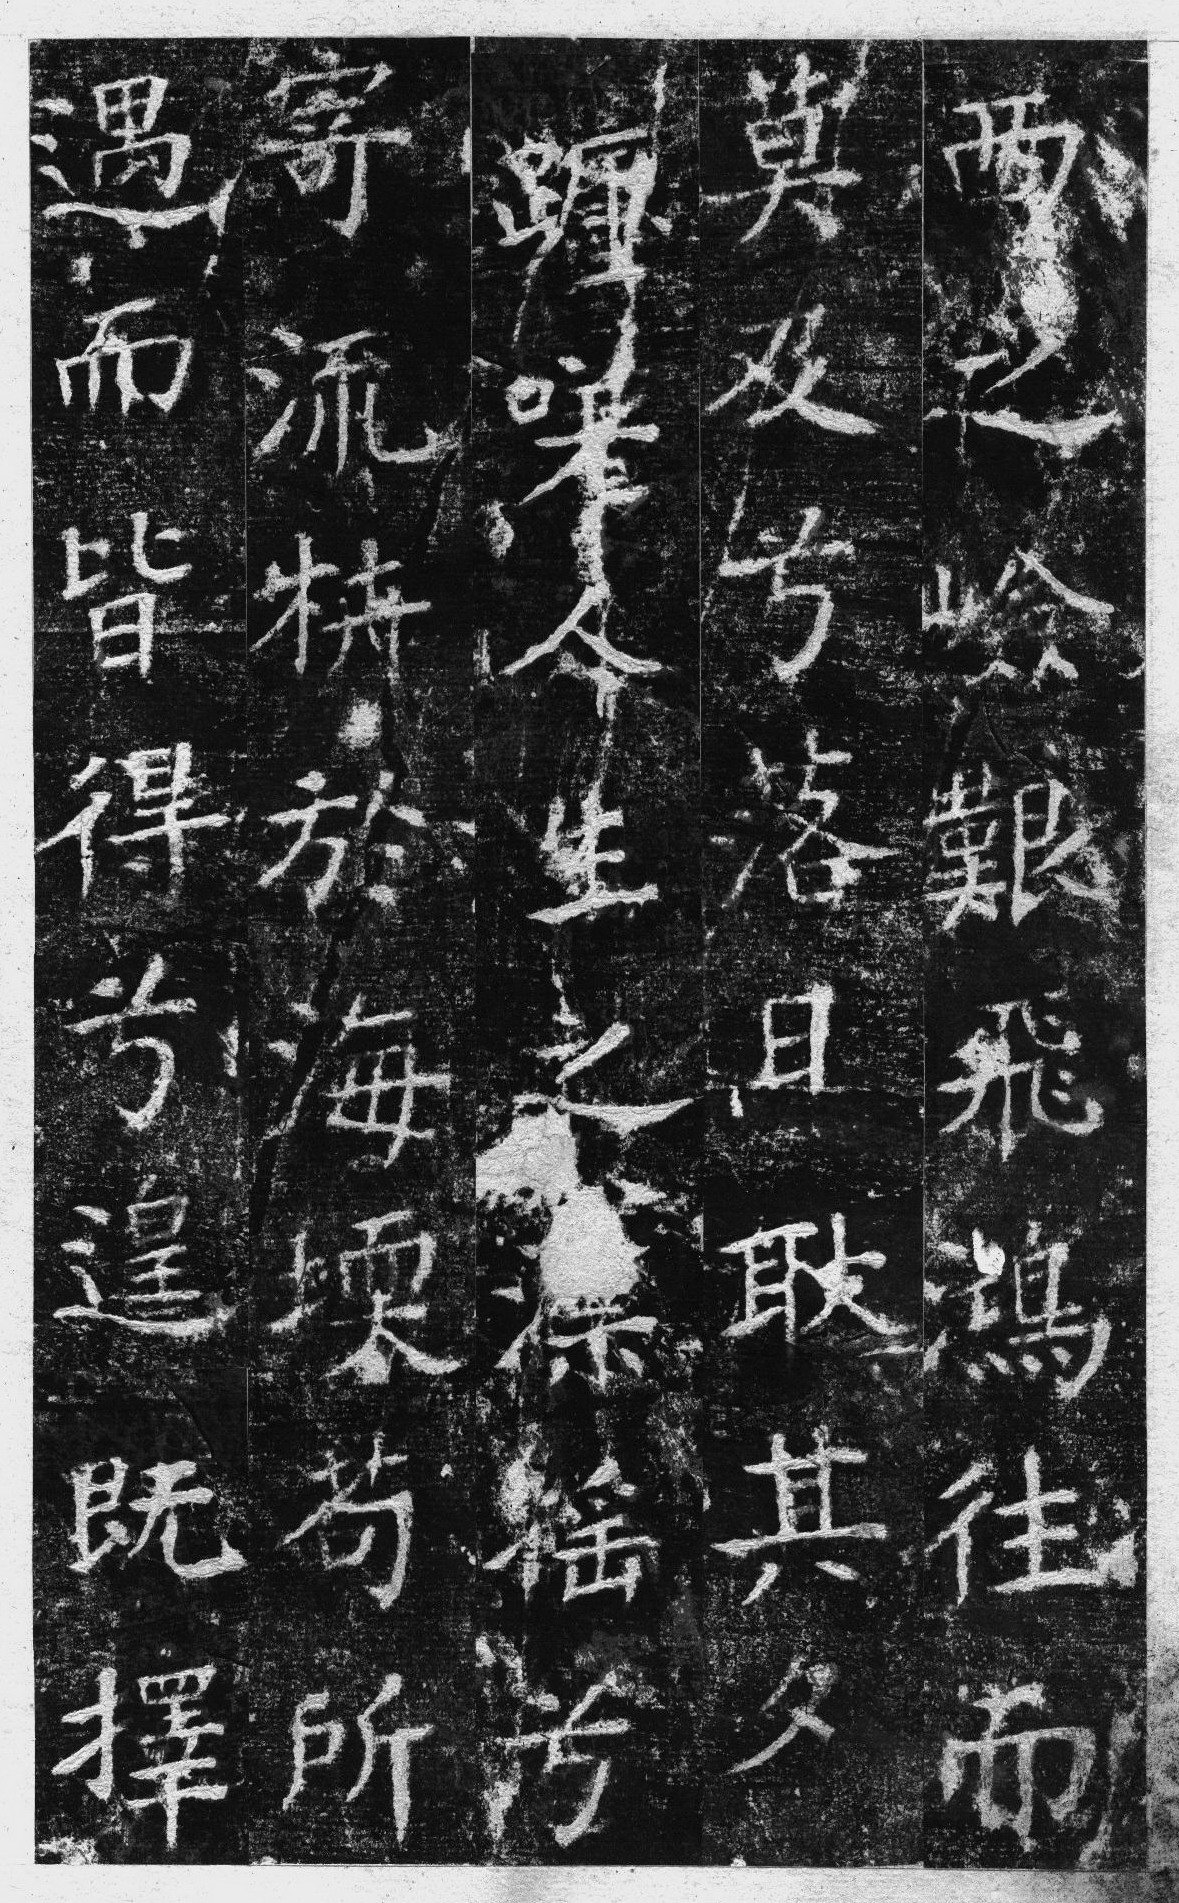 西之嶮艱飛鴻往而
莫及兮落日耿其夕
躔嗟人生之漂搖兮
寄流枿於海壖苟所
遇而皆得兮遑既擇